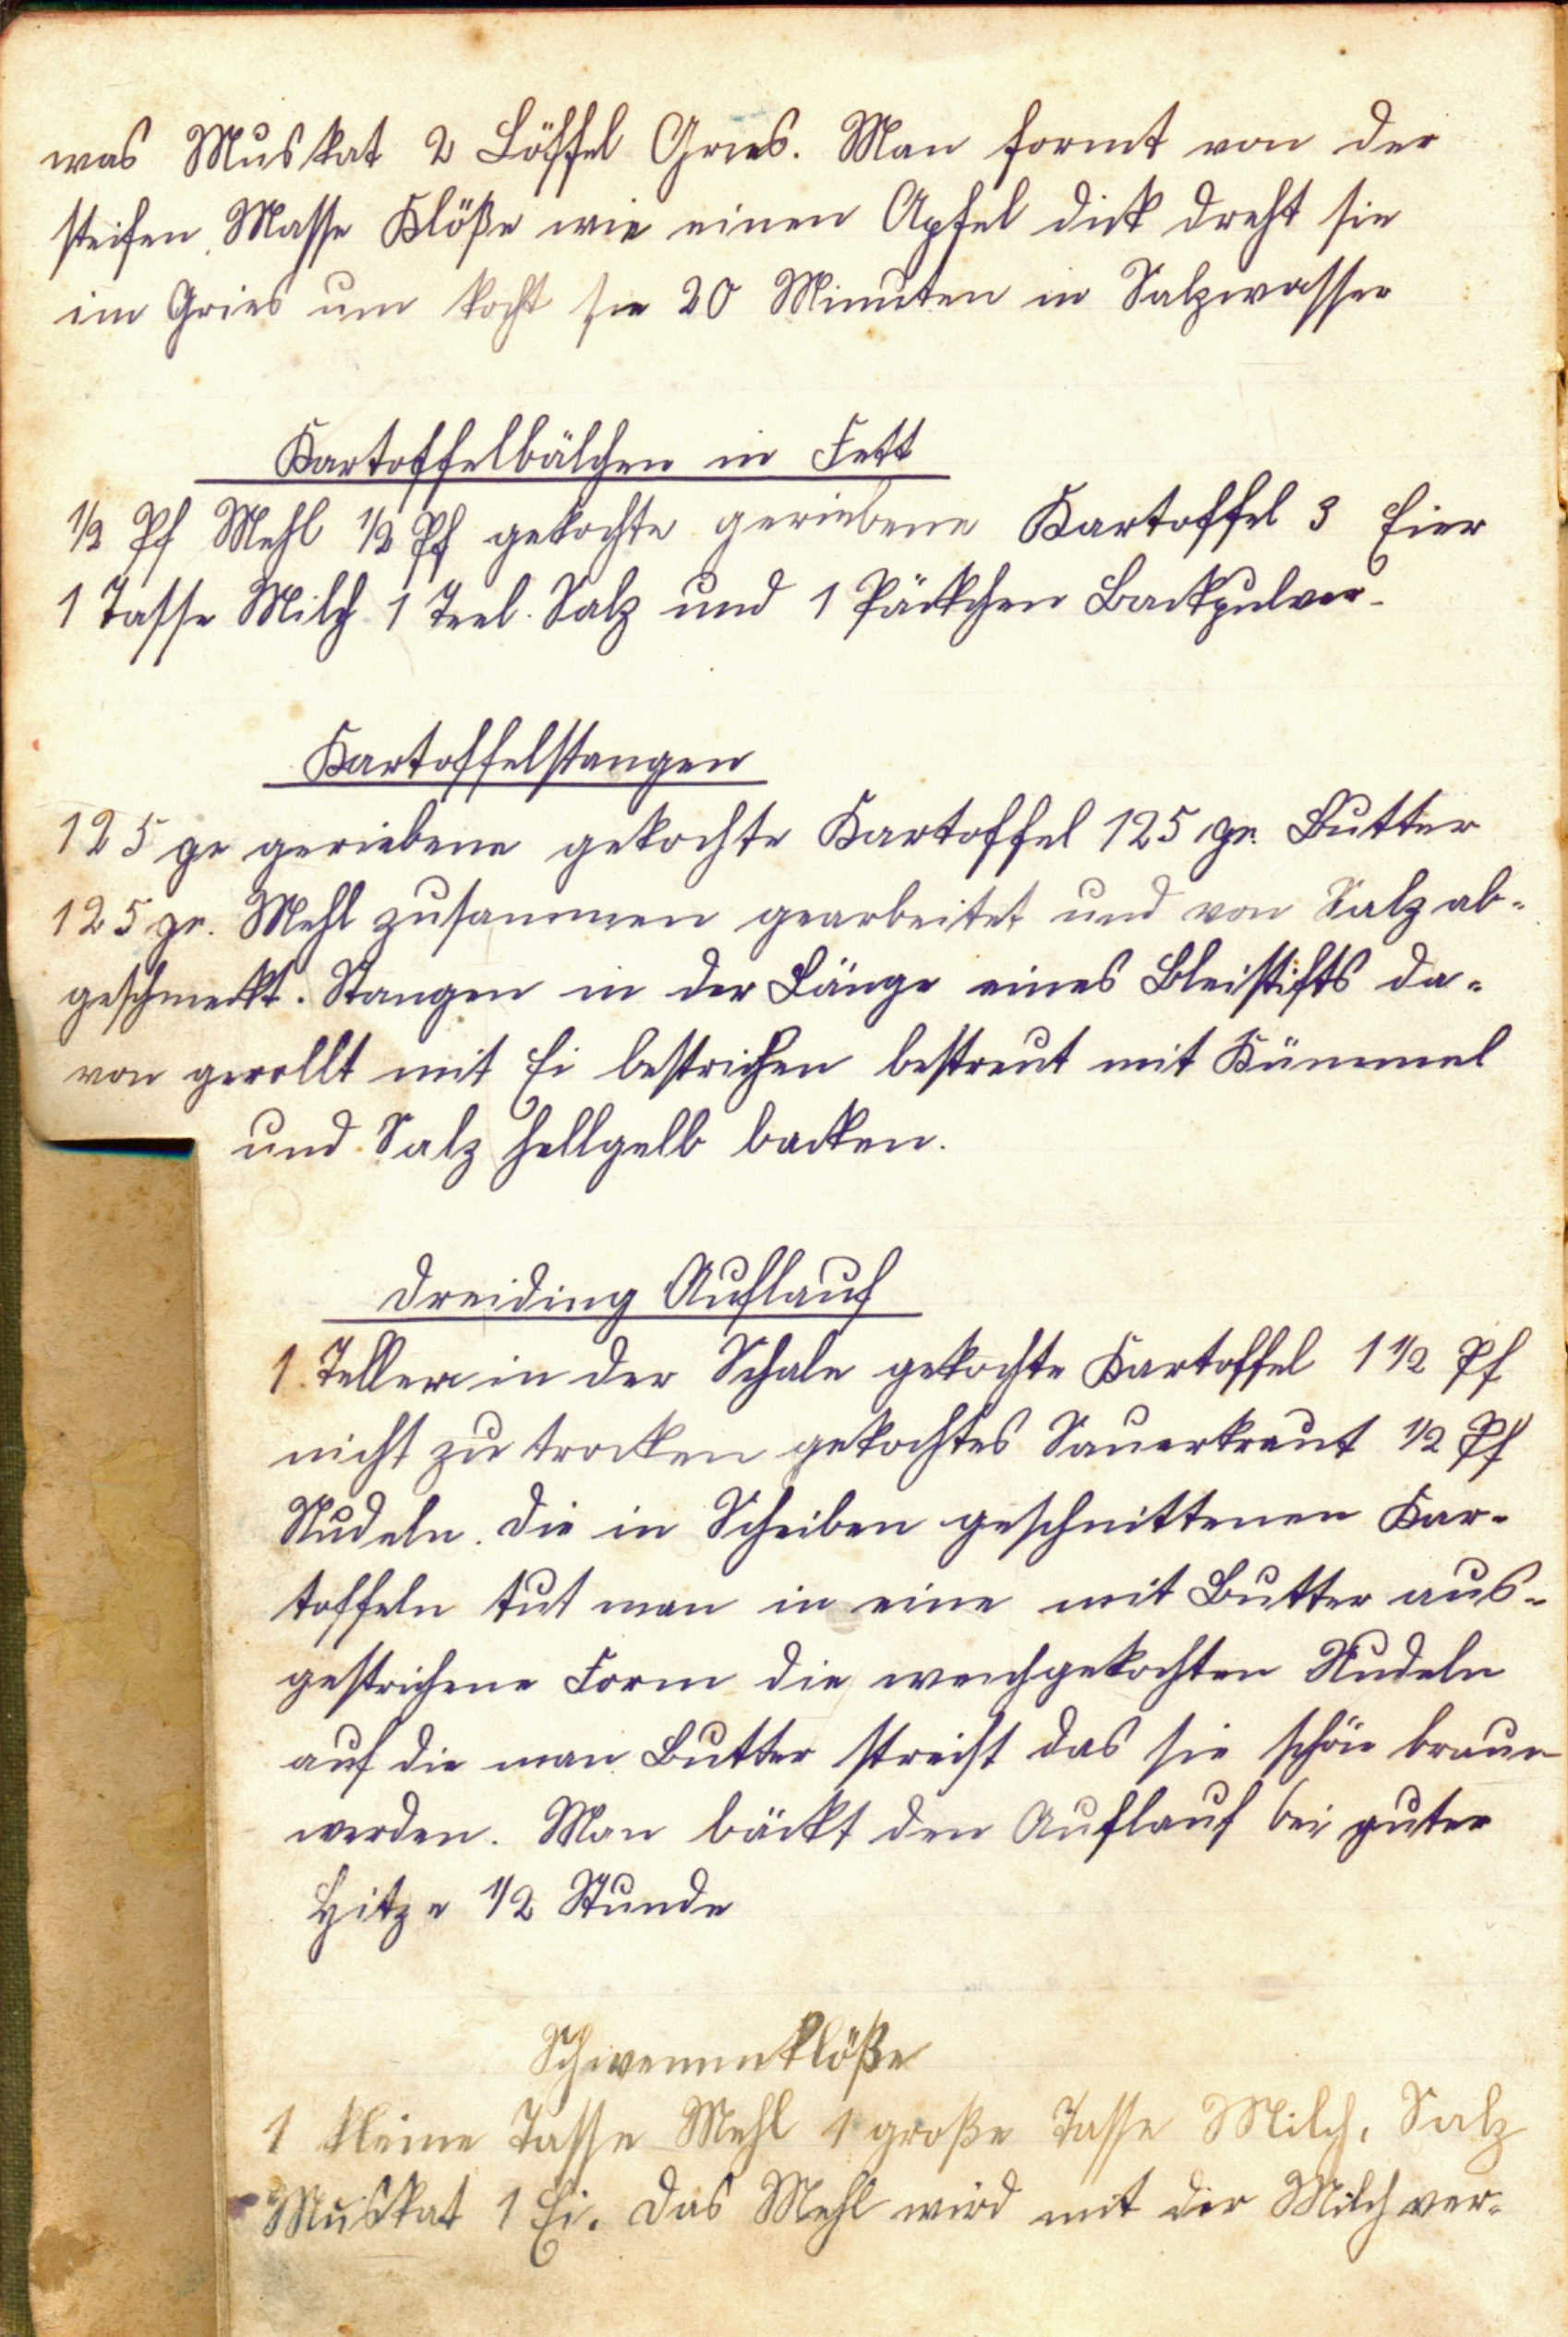 was Muskat 2 Löffel Gries. Man formt von der
steifen Masse Klöße wie einen Apfel dick dreht sie
im Gries um kocht sie 20 Minuten in Salzwasser
Kartoffelbälchen in Fett
1/2 Pf Mehl 1/2 Pf gekochte geriebene Kartoffel 3 Eier
1 Tasse Milch 1 Teel. Salz und 1 Päckchen Backpulver.
Kartoffelstangen
125 gr geriebene gekochte Kartoffel 125 gr. Butter
125 gr. Mehl zusammen gearbeitet und von Salz ab-
geschmeckt. Stangen in der Länge eines Bleistifts da-
von gerollt mit Ei bestrichen bestreut mit Kümmel
und Salz hellgelb backen.
Dreiding Auflauf
1 Teller in der Schale gekochte Kartoffel 1 1/2 Pf
nicht zu trocken gekochtes Sauerkraut 1/2 Pf
Nudeln. Die in Scheiben geschnittenen Kar-
toffeln tut man in eine mit Butter aus-
gestrichene Form die weichgekochten Nudeln
auf die man Butter streicht das sie schön braun
werden. Man bäckt den Auflauf bei guter
Hitze 1/2 Stunde
Schwemmklöße
1 kleine Tasse Mehl 1 große Tasse Milch, Salz
Muskat 1 Ei. Das Mehl wird mit der Milch ver-